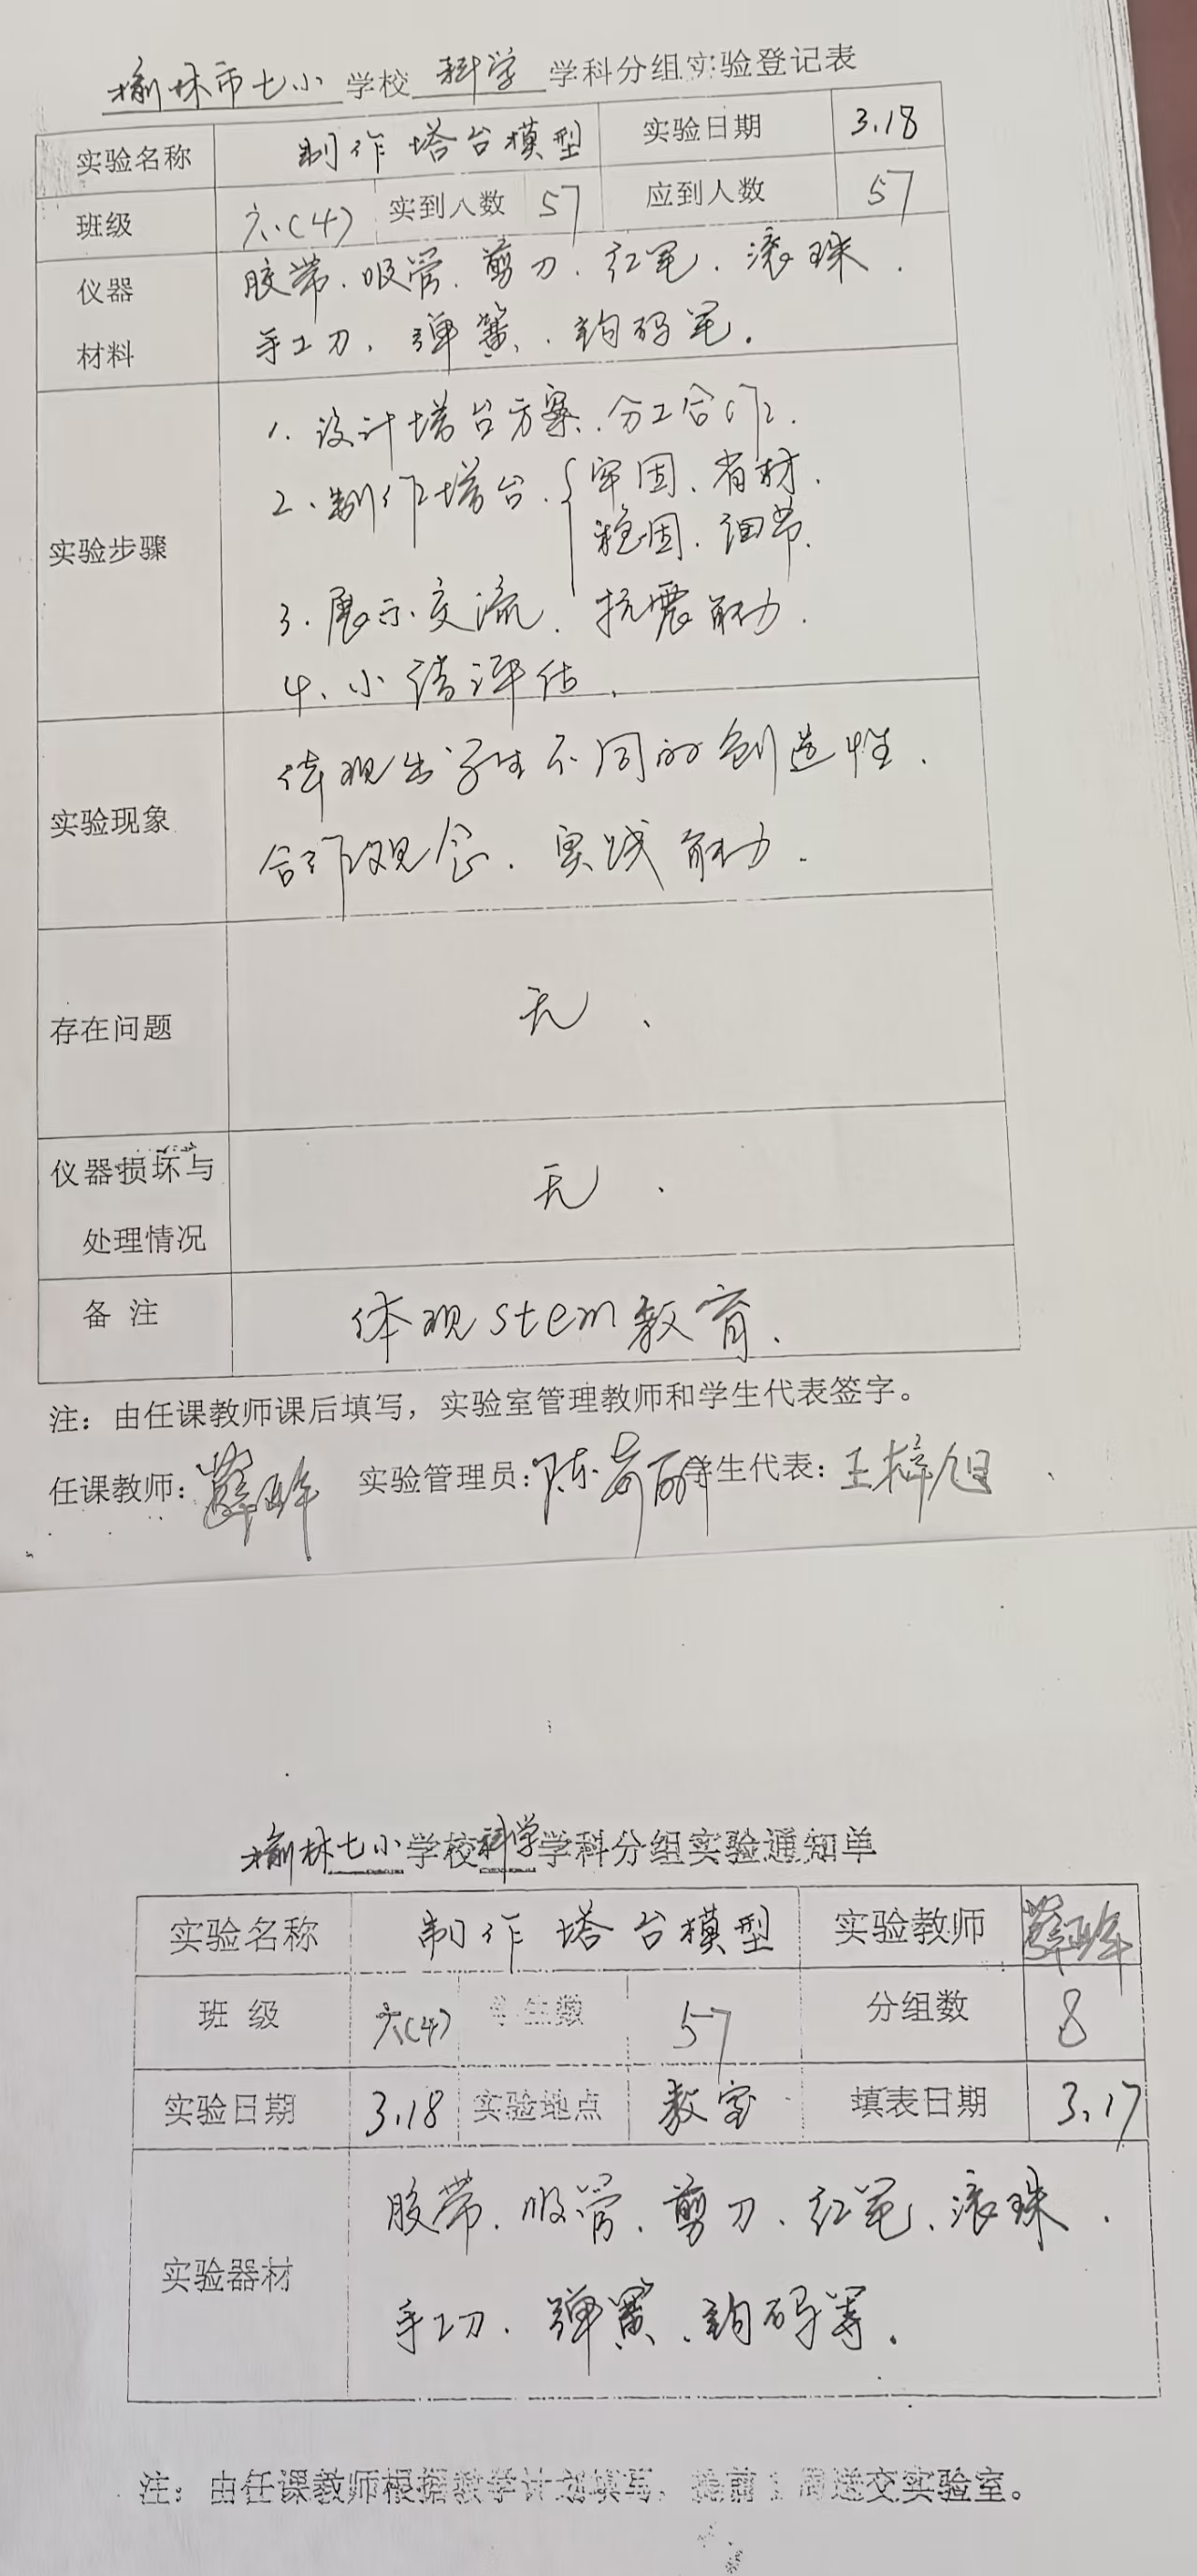 榆林市七小学校 科学 学科分组实验登记表
实验名称 制作塔台模型 实验日期 3.18
班级 六(4) 实到人数 57 应到人数 57
仪器材料 胶带、吸管、剪刀、红笔、滚珠、
手工刀、弹簧、钩码笔。
实验步骤
1、设计塔台方案、分工合作、
2、制作塔台、{牢固、省材、
稳固、细节、
3、展示交流、抗震能力、
4、小结评估、
实验现象 体现出学生不同的创造性、
合作观念、实践能力、
存在问题 无、
仪器损坏与处理情况 无、
备 注 体现stem教育、
注：由任课教师课后填写，实验室管理教师和学生代表签字。
任课教师： 实验管理员： 学生代表：王梓旭
榆林七小学校科学学科分组实验通知单
实验名称 制作塔台模型 实验教师
班 级 六(4) 学生数 57 分组数 8
实验日期 3.18 实验地点 教室 填表日期 3.17
实验器材 胶带、吸管、剪刀、红笔、滚珠、
手工刀、弹簧、钩码等。
注：由任课教师根据教学计划填写，提前1周送交实验室。